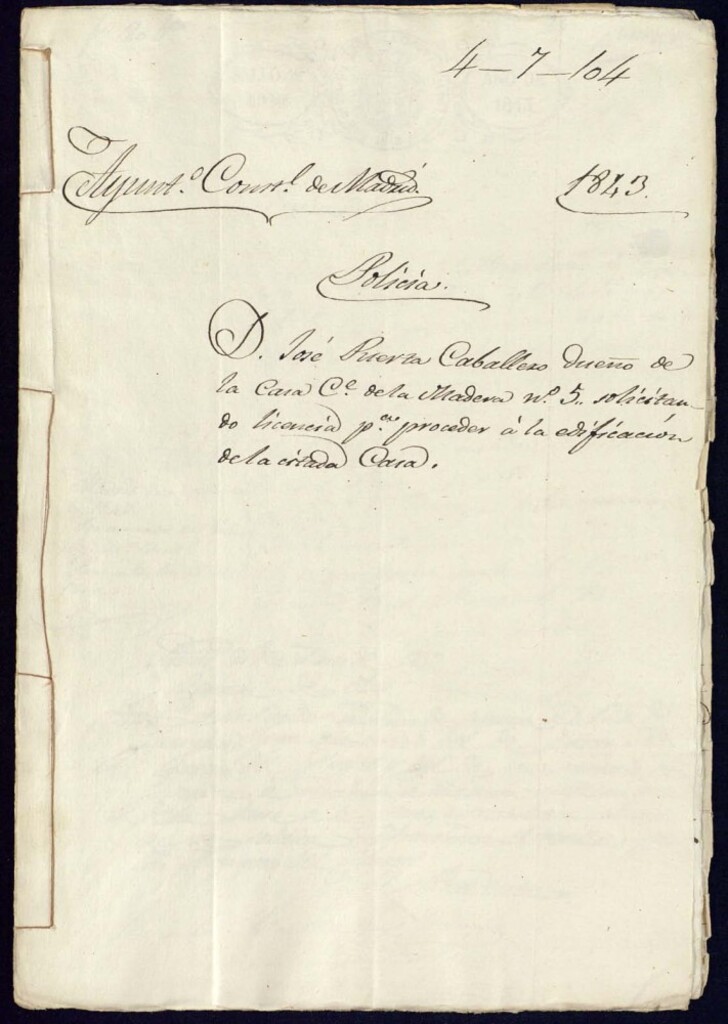 4-7-104
Ayunt.º Const.l de Madrid. 1843.
Policia.
D. José Puerta Caballero dueño de
la Casa C.e de la Madera n.º 5. solicitan-
do licencia p.a proceder à la edificación
de la citada Casa.